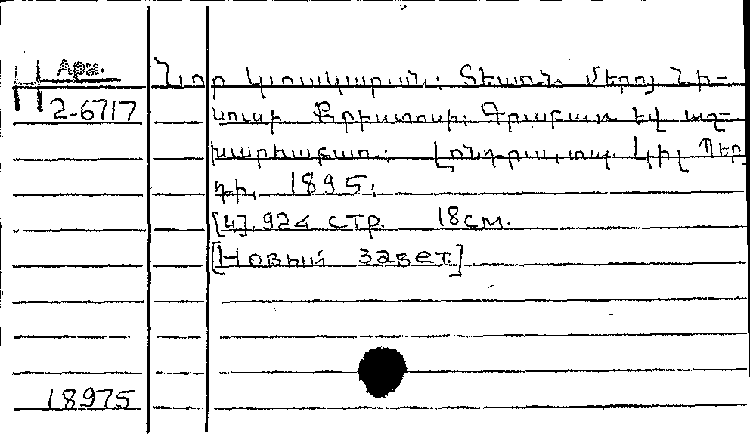 Арм.
Н
2-6717
Նոր Կտակարան։ Տեառն մերոյ Նի-
սուսի Քրիստոսի. Գրաբառ եվ աշ-
խարհաբառ։ Լոնդրա, տպ. Կիլ Պեր
դի, 1895։
[4], 924 стр. 18 см.
[Новый завет]
18975